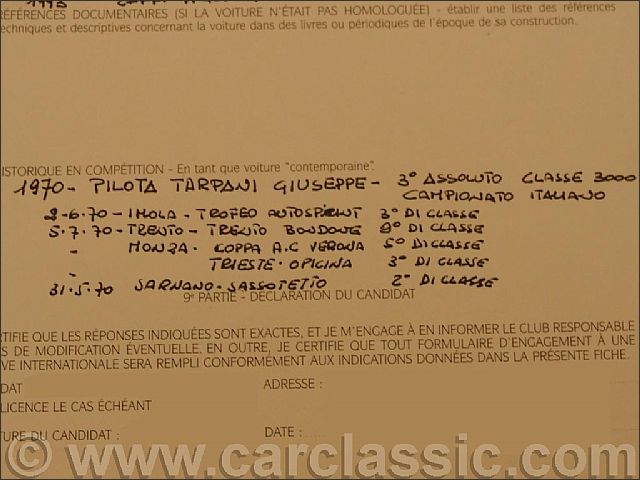 1993
RÉFÉRENCES DOCUMENTAIRES (SI LA VOITURE N'ÉTAIT PAS HOMOLOGUÉE) - établir une liste des références
techniques et descriptives concernant la voiture dans des livres ou périodiques de l'époque de sa construction.
HISTORIQUE EN COMPÉTITION - En tant que voiture "contemporaine".
1970 - PILOTA TARPANI GIUSEPPE - 3° ASSOLUTO CLASSE 3000
CAMPIONATO ITALIANO
2-6.70 - IMOLA - TROFEO AUTOSPRINT 3° DI CLASSE
5.7.70 - TRENTO - TRENTO BONDONE 2° DI CLASSE
- MONZA - COPPA A.C VERONA 5° DI CLASSE
- TRIESTE - OPICINA 3° DI CLASSE
31.5.70 SARNANO - SASSOTETTO 2° DI CLASSE
9e PARTIE - DECLARATION DU CANDIDAT
ERTIFIE QUE LES RÉPONSES INDIQUÉES SONT EXACTES, ET JE M'ENGAGE À EN INFORMER LE CLUB RESPONSABLE
S DE MODIFICATION ÉVENTUELLE. EN OUTRE, JE CERTIFIE QUE TOUT FORMULAIRE D'ENGAGEMENT À UNE
VE INTERNATIONALE SERA REMPLI CONFORMÉMENT AUX INDICATIONS DONNÉES DANS LA PRÉSENTE FICHE.
DAT ADRESSE :
LICENCE LE CAS ÉCHÉANT
TURE DU CANDIDAT : DATE :.....
© www.carclassic.com